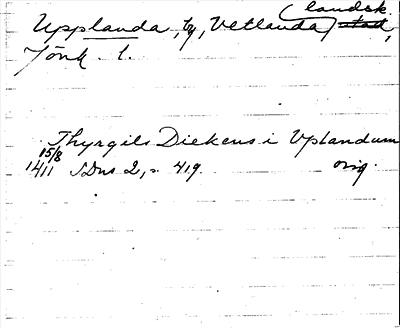 Upplanda, by, Vetlanda landsk.,
Jönk. l.
Thyrgils Diekens i Uplandum
15/8 1411 SDns 2, s. 419. orig.